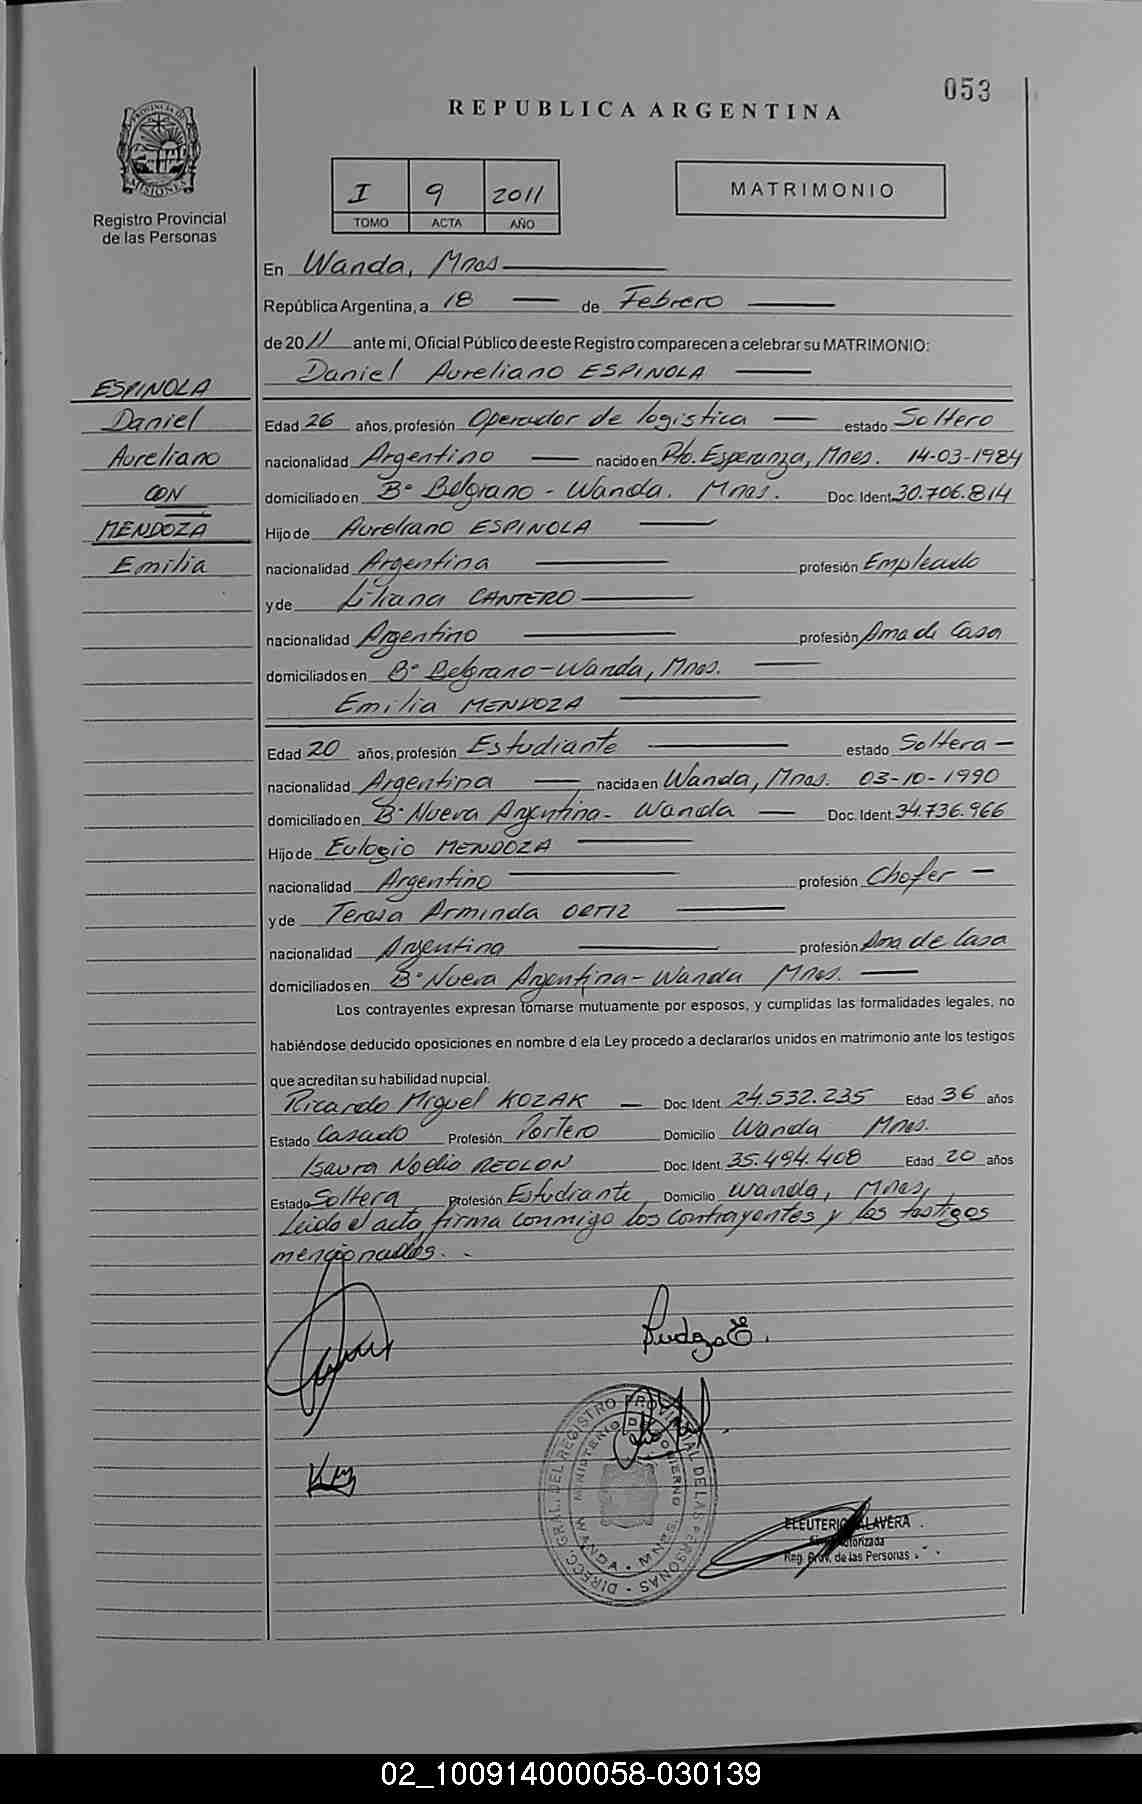 053
REPUBLICA ARGENTINA
PROVINCIA DE MISIONES
Registro Provincial
de las Personas
I 9 2011
TOMO ACTA AÑO
MATRIMONIO
En Wanda, Mnes
República Argentina, a 18 de Febrero
de 2011 ante mí, Oficial Público de este Registro comparecen a celebrar su MATRIMONIO:
Daniel Aureliano ESPINOLA
ESPINOLA
Daniel
Aureliano
CON
MENDOZA
Emilia
Edad 26 años, profesión Operador de logistica estado Soltero
nacionalidad Argentino nacido en Pto. Esperanza, Mnes. 14-03-1984
domiciliado en B° Belgrano - Wanda. Mnes. Doc. Ident. 30.706.814
Hijo de Aureliano ESPINOLA
nacionalidad Argentina profesión Empleado
y de Liliana CANTERO
nacionalidad Argentino profesión Ama de Casa
domiciliados en B° Belgrano - Wanda, Mnes.
Emilia MENDOZA
Edad 20 años, profesión Estudiante estado Soltera -
nacionalidad Argentina nacida en Wanda, Mnes. 03-10-1990
domiciliado en B° Nueva Argentina - Wanda Doc. Ident. 34.736.966
Hijo de Eulogio MENDOZA
nacionalidad Argentino profesión Chofer -
y de Teresa Arminda ORTIZ
nacionalidad Argentina profesión Ama de Casa
domiciliados en B° Nueva Argentina - Wanda Mnes.
Los contrayentes expresan tomarse mutuamente por esposos, y cumplidas las formalidades legales, no
habiéndose deducido oposiciones en nombre d ela Ley procedo a declararlos unidos en matrimonio ante los testigos
que acreditan su habilidad nupcial.
Ricardo Miguel KOZAK - Doc. Ident. 24.532.235 Edad 36 años
Estado Casado Profesión Portero Domicilio Wanda Mnes.
Isaura Noelia REOLON Doc. Ident. 35.494.408 Edad 20 años
Estado Soltera Profesión Estudiante Domicilio Wanda, Mnes,
Leida el acta, firma conmigo los contrayentes y los testigos
mencionados.
DIREC. GRAL. DEL REGISTRO PROVINCIAL DE LAS PERSONAS
MINISTERIO DE GOBIERNO
WANDA - MNES
ELEUTERIO TALAVERA
Autorizada
Reg. Prov. de las Personas
02_100914000058-030139